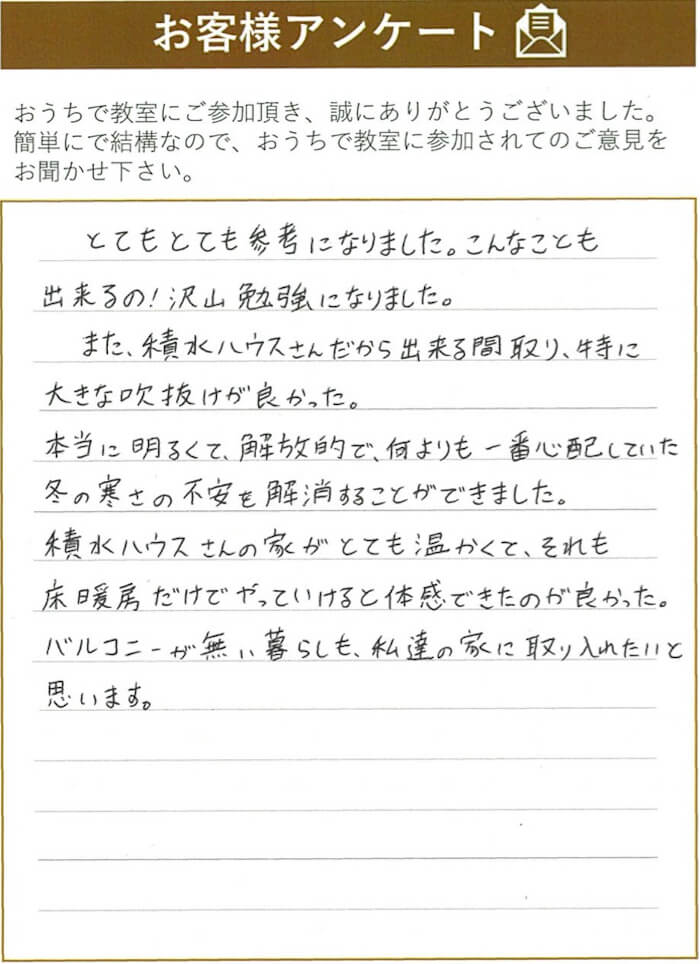 お客様アンケート
おうちで教室にご参加頂き、誠にありがとうございました。
簡単にで結構なので、おうちで教室に参加されてのご意見を
お聞かせ下さい。
とてもとても参考になりました。こんなことも
出来るの!沢山勉強になりました。
また、積水ハウスさんだから出来る間取り、特に
大きな吹抜けが良かった。
本当に明るくて、解放的で、何よりも一番心配していた
冬の寒さの不安を解消することができました。
積水ハウスさんの家がとても温かくて、それも
床暖房だけでやっていけると体感できたのが良かった。
バルコニーが無い暮らしも、私達の家に取り入れたいと
思います。